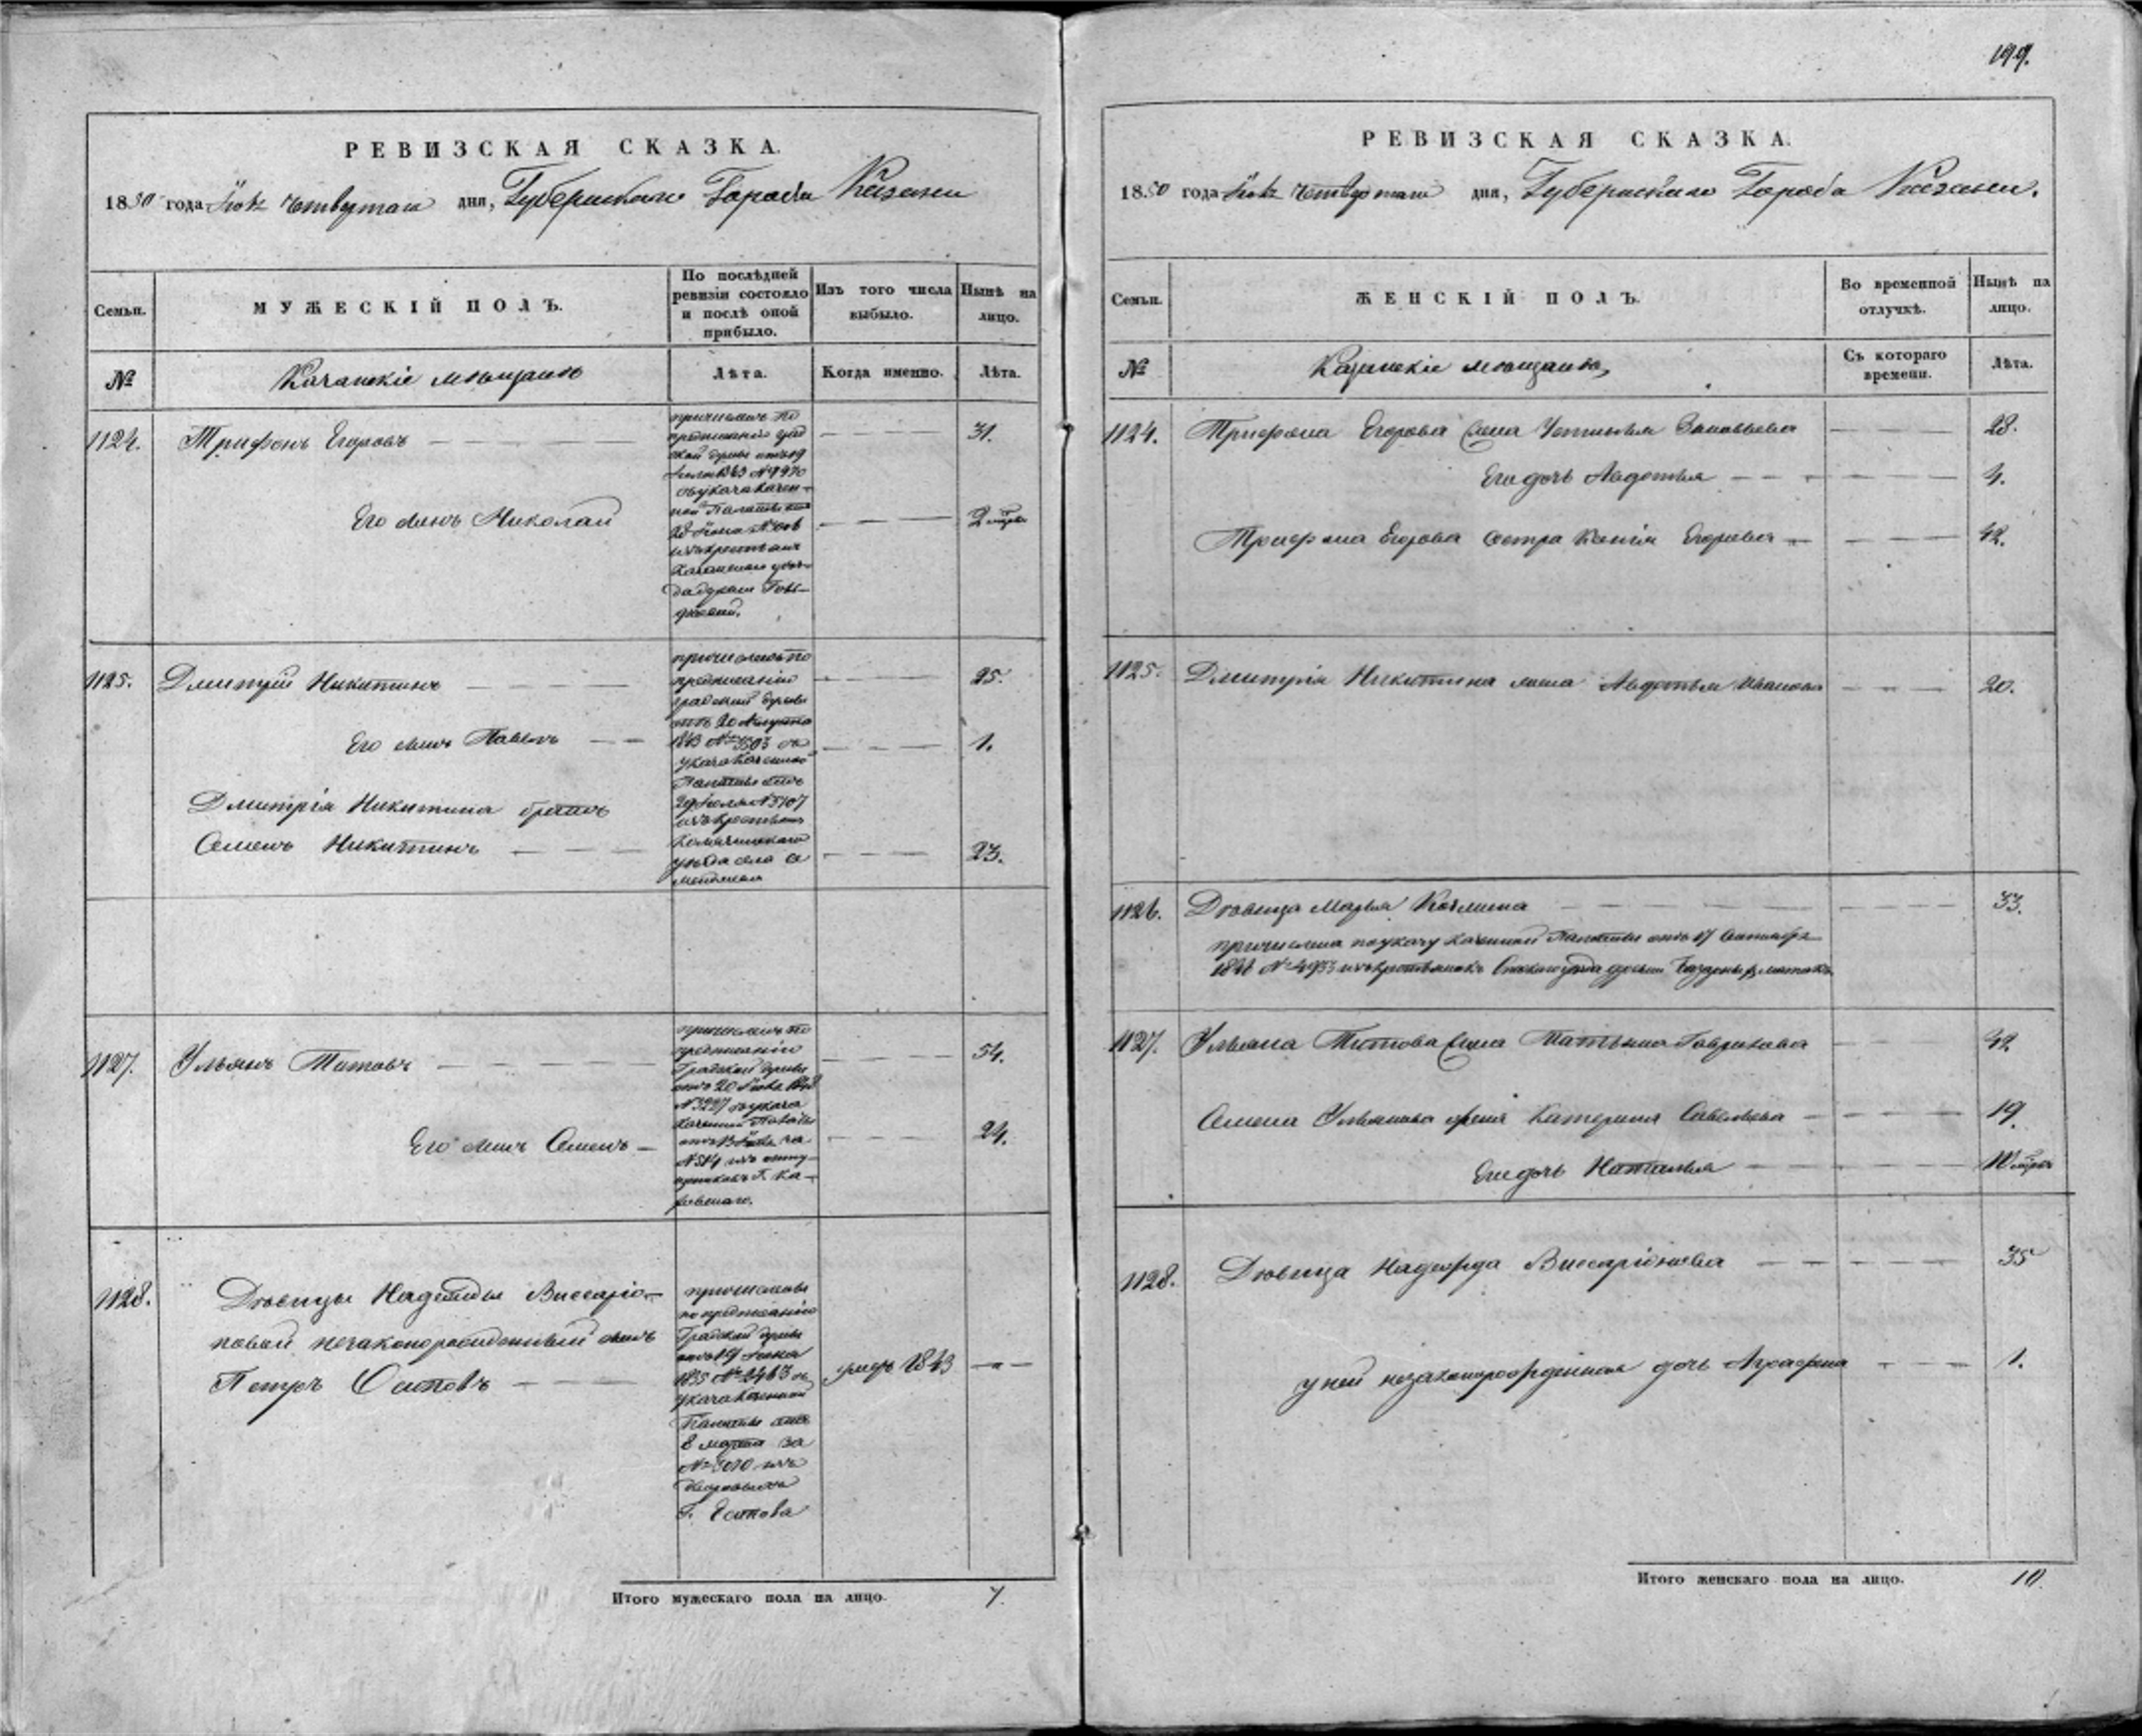 199.
РЕВИЗСКАЯ СКАЗКА.
1850 года четвертаго дня, Губернскаго Города Казани
Семьи.
МУЖЕСКІЙ ПОЛЪ.
По послѣдней
ревизіи состояло
и послѣ оной
прибыло.
Изъ того числа
выбыло.
Нынѣ на
лицо.
№
Казанскіе мѣщане
Лѣта.
Когда именно.
Лѣта.
1124.
Трифонъ Егоровъ
31.
причисленъ по
предписанію град
ской думы отъ 19
указа Казен-
ной Палаты
изъ крестьянъ
Казанскаго уѣз-
да
Его сынъ Николай
2
1125.
Дмитрій Никитинъ
25.
причисленъ по
предписанію
градской думы
отъ 20 Августа
1843
указа Казенной
Палаты отъ
29 Іюля № 5107
изъ крестьянъ
уѣзда села
Его сынъ Павелъ
1.
Дмитрія Никитина братъ
Семенъ Никитинъ
23.
1127.
Ульянъ Титовъ
54.
причисленъ по
предписанію
Градской думы
отъ 20
№ 3227 указа
Казенной Палаты
за
№ 514 изъ отпу-
г. Ка-
Его сынъ Семенъ
24.
1128.
Дѣвицы Надежды Виссаріо-
новой незаконорожденный сынъ
Петръ Осиповъ
умеръ 1843
причислены
по предписанію
Градской думы
отъ 19
1835 № 2463
указа Казенной
Палаты отъ
8 марта за
изъ
дворовыхъ
г. Есипова
Итого мужескаго пола на лицо.
7.
РЕВИЗСКАЯ СКАЗКА.
1850 года четвертаго дня, Губернскаго Города Казани.
Семьи.
ЖЕНСКІЙ ПОЛЪ.
Во временной
отлучкѣ.
Нынѣ на
лицо.
№
Казанскіе мѣщане,
Съ котораго
времени.
Лѣта.
1124.
Трифона Егорова жена Устинья Зиновьева
28.
Его дочь Авдотья
4.
Трифона Егорова сестра Ксенія Егорова
42.
1125.
Дмитрія Никитина жена Авдотья Иванова
20.
1126.
Дѣвица Марья Козмина
33.
причислена по указу Казенной Палаты отъ 17 Сентября
№ 4953 изъ крестьянокъ Спаскаго уѣзда
1127.
Ульяна Титова жена Татьяна Гаврилова
42.
Семена Ульянова жена Катерина Савельева
19.
Его дочь Наталья
10
1128.
Дѣвица Надежда Виссаріонова
35
у ней незаконорожденная дочь Аграфена
1.
Итого женскаго пола на лицо.
10.